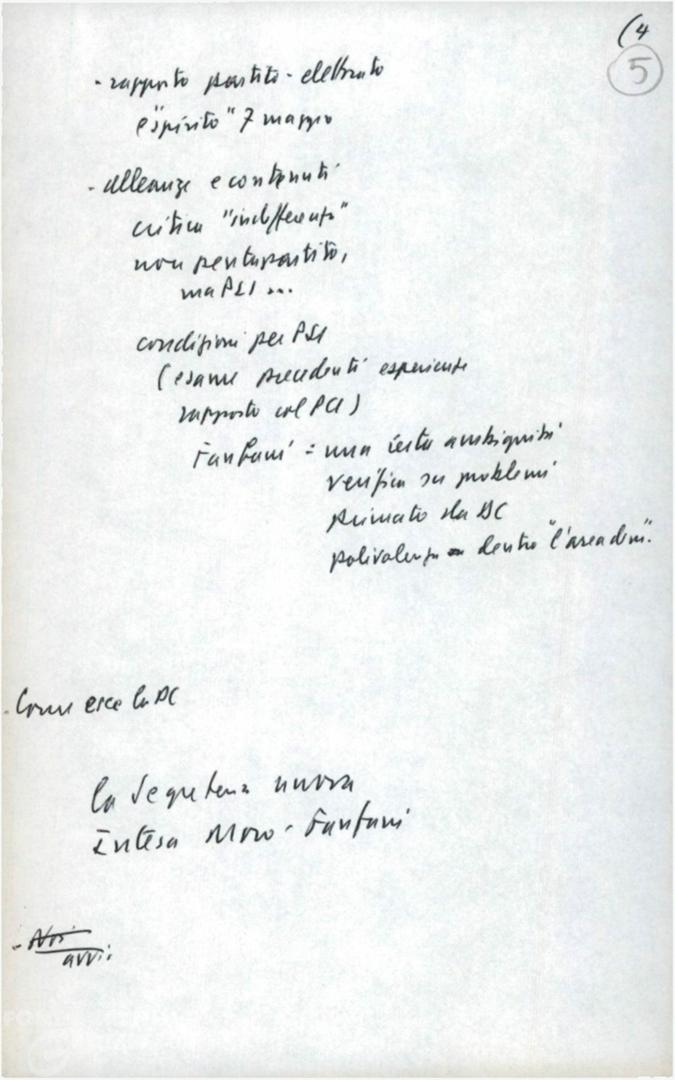 (4
5
- rapporto partito - elettorato
e "spirito" 7 maggio
- alleanze e contenuti
critica "indifferenza"
non pentapartito,
ma PSI ...
condizioni per PSI
(esame precedenti esperienze
rapporto col PCI)
Fanfani = una certa ambiguità
verifica su problemi
primato da DC
polivalenza dentro "l'area dem."
- Come esce la DC
la Segreteria nuova
Intesa Moro - Fanfani
- Noi
avvi: